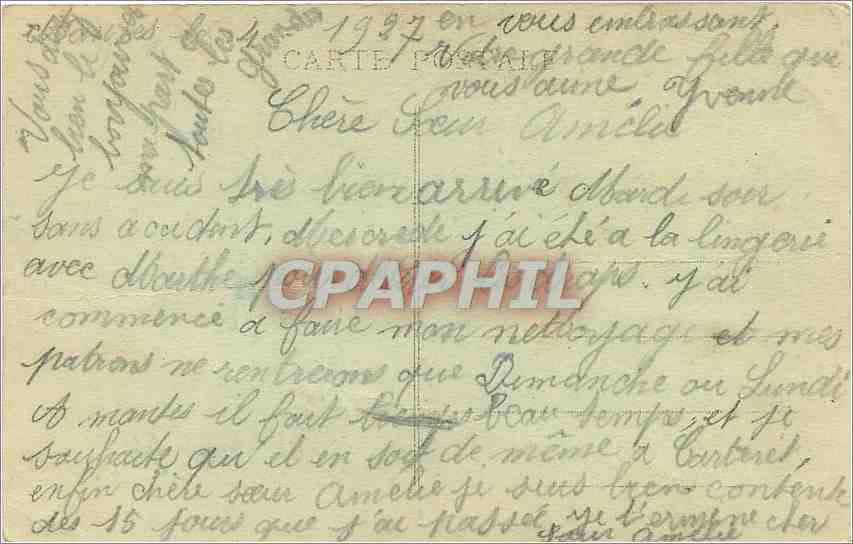 Mantes le 4 1927
CARTE POSTALE
Chère Sœur Amélie
Je suis très bien arrivé Mardi soir
sans accident, Mescredi j'ai été a la lingerie
avec Marthe draps. j'ai
commencé a faire mon nettoyage et mes
patrons ne rentrerons que Dimanche ou Lundi
A mantes il fait beau temps, et je
souhaite qu'el en soit de même a Carteret,
enfin chère sœur Amélie je suis bien contente
des 15 jours que j'ai passée, je termine cher
sœur Amélie
en vous embrassant.
Votre grande fille qui
vous aime, Yvonne
Vous
bien le
bonjour
ma part a
toutes les
grandes
CPAPHIL